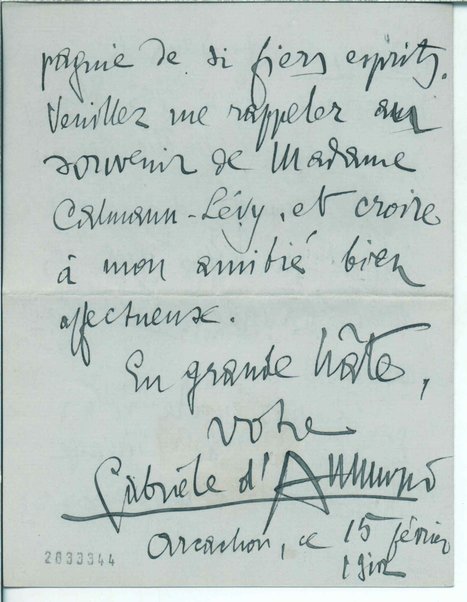 pagnie de si fiers esprits.
Veuillez me rappeler au
souvenir de Madame
Calmann-Lévy, et croire
à mon amitié bien
affectueuse.
En grande hâte,
votre
Gabriele d'Annunzio
Arcachon, ce 15 février
2833344